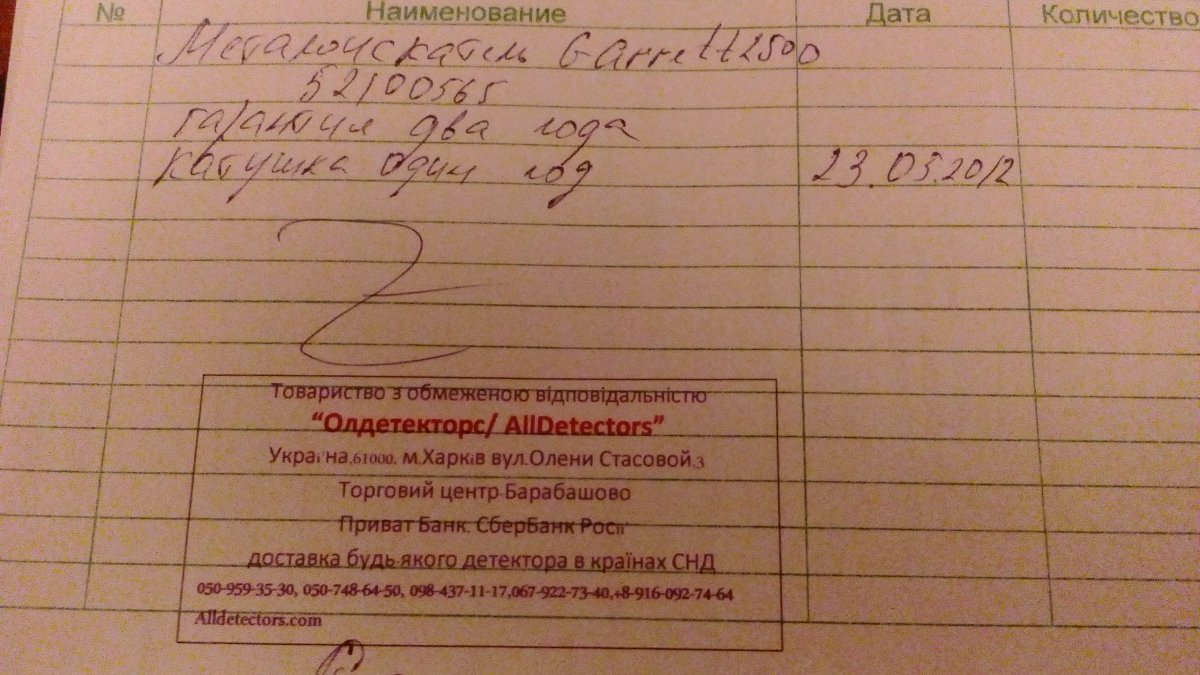 № Наименование Дата Количество
Металоискатель Garrett 2500
52100565
гарантия два года
катушка один год 23.05.2012
Товариство з обмеженою відповідальністю
“Олдетекторс/ AllDetectors”
Україна,61000. м.Харків вул.Олени Стасовой,3
Торговий центр Барабашово
Приват Банк. СберБанк Росії
доставка будь-якого детектора в країнах СНД
050-959-35-30, 050-748-64-50, 098-437-11-17,067-922-73-40,+8-916-092-74-64
Alldetectors.com